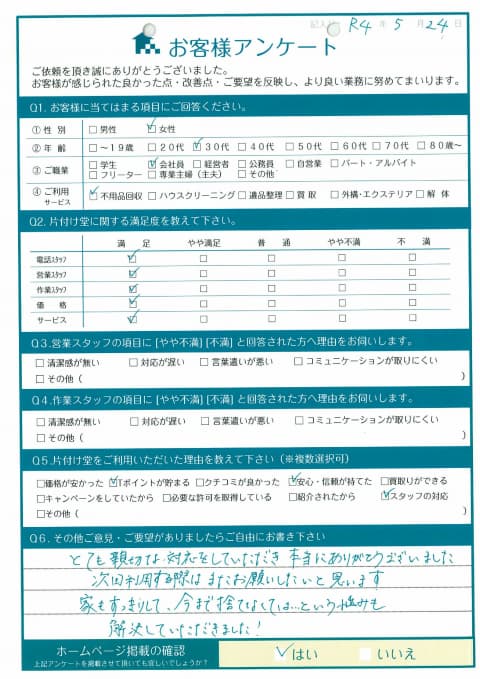 記入日 R4 年 5 月 24 日
お客様アンケート
ご依頼を頂き誠にありがとうございました。
お客様が感じられた良かった点・改善点・ご要望を反映し、より良い業務に努めてまいります。
Q1. お客様に当てはまる項目にご回答ください。
① 性 別 □ 男性 ☑ 女性
② 年 齢 □ ～19歳 □ 20代 ☑ 30代 □ 40代 □ 50代 □ 60代 □ 70代 □ 80歳～
③ ご職業 □ 学生 ☑ 会社員 □ 経営者 □ 公務員 □ 自営業 □ パート・アルバイト
□ フリーター □ 専業主婦（主夫） □ その他
④ ご利用サービス ☑ 不用品回収 □ ハウスクリーニング □ 遺品整理 □ 買 取 □ 外構・エクステリア □ 解 体
Q2. 片付け堂に関する満足度を教えて下さい。
満 足 やや満足 普 通 やや不満 不 満
電話スタッフ ☑ □ □ □ □
営業スタッフ ☑ □ □ □ □
作業スタッフ ☑ □ □ □ □
価 格 ☑ □ □ □ □
サービス ☑ □ □ □ □
Q3.営業スタッフの項目に [やや不満] [不満] と回答された方へ理由をお伺いします。
□ 清潔感が無い □ 対応が遅い □ 言葉遣いが悪い □ コミュニケーションが取りにくい
□ その他 ( )
Q4.作業スタッフの項目に [やや不満] [不満] と回答された方へ理由をお伺いします。
□ 清潔感が無い □ 対応が遅い □ 言葉遣いが悪い □ コミュニケーションが取りにくい
□ その他 ( )
Q5.片付け堂をご利用いただいた理由を教えて下さい（※複数選択可）
□価格が安かった ☑Tポイントが貯まる □クチコミが良かった ☑安心・信頼が持てた □買取りができる
□キャンペーンをしていたから □必要な許可を取得している □紹介されたから ☑スタッフの対応
□その他( )
Q6. その他ご意見・ご要望がありましたらご自由にお書き下さい
とても親切な対応をしていただき 本当にありがとうございました
次回利用する際は またお願いしたいと思います
家もすっきりして、今まで捨てなくては…という悩みも
解決していただきました！
ホームページ掲載の確認 ☑ はい □ いいえ
上記アンケートを掲載させて頂いても宜しいでしょうか？